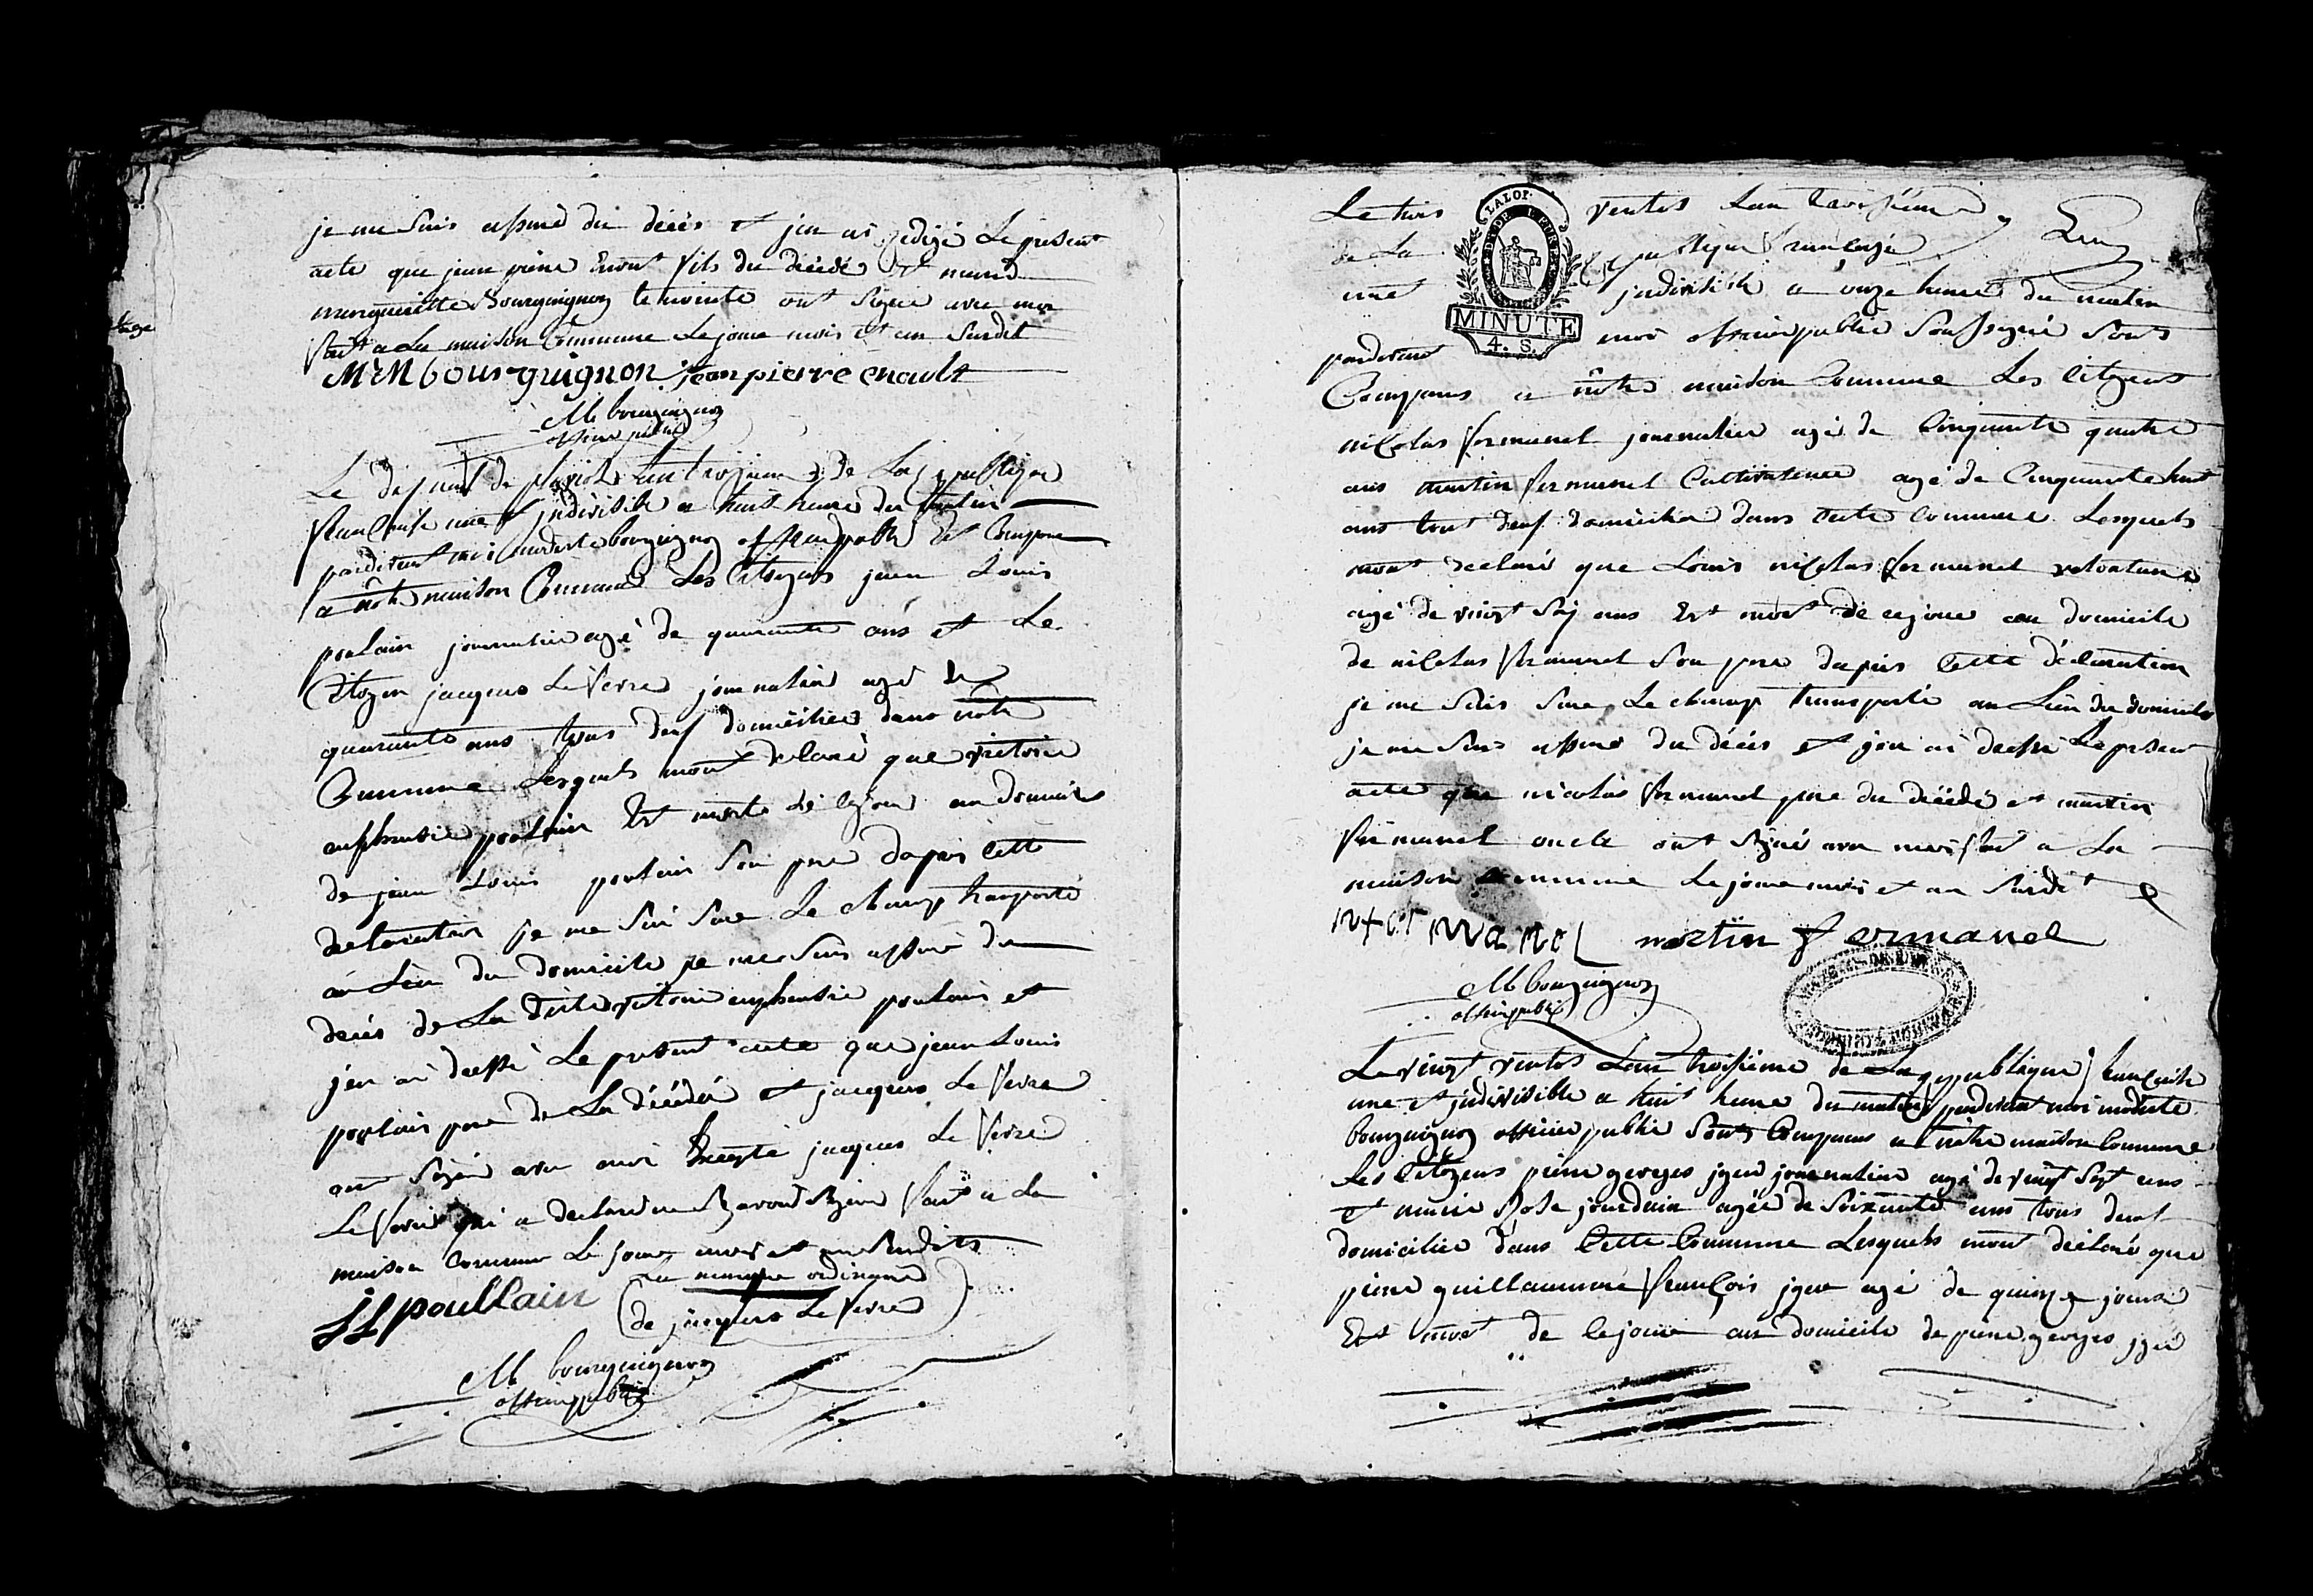 je me suis assuré du décès et jen ai redigé le present
acte que jean pierre Enault fils du décédé et marie
margueritte Bourguignon temointe ont signé avec moi
fait a La maison Commune Le jour mois et an Surdit
MrM bourguignon jean pierre enault
M bourguignon
officier public
Le dix neuf de pluviose Lan troisieme de La republique
francaise une et jndivisible a huit heure du matin
pardevant moi modeste bourguignon officier public Est Comparu
a nôtre maison Commune Les Citoyens jean Louis
poulain journalier agé de quarante ans et Le
Citoyen jacques Le Verre journalier agé de
quarante ans tous deux domicilies dans notre
Commune Lesquels mont déclaré que victoire
euphrasie poulain Est morte de ce jour au domicile
de jean Louis poulain Son pere dapres cette
declaration je me suis Sure Le champ transporté
au Lieu du domicile je me suis assuré du
decès de La dite victoire euphrasie poulain et
jen ai dressé Le present acte que jean Louis
poulain pere de La décédée et jacques Le Verre
ont signé avec moi Excepté jacques Le Verre
Le Verre qui a declaré ne Savoir Signer fait a La
maison commune Le jour mois et an Surdits
La marque ordinaire
JLpoullain (de jacques Le Verre)
M bourguignon
officier public
Le trois ventos Lan troisieme
de La republique francaise
une jndivisible a onze heure du matin
pardevant moi officier public Soussigné Sont
LA LOI
MINUTE
4. S.
Comparus a nôtre maison Commune Les Citoyens
nicolas fermanel journalier agé de Cinquante quatre
ans martin fermanel Cultivateur agé de Cinquante huit
ans tous deux domicilier dans cette commune Lesquels
mont declaré que Louis nicolas fermanel volontaire
agé de vingt Six ans Est mort de ce jour au domicile
de nicolas fermanel Son pere dapres Cette déclaration
je me suis Sure Le champ transporté au Lieu du domicile
je me suis assuré du décès et jen ai dressé Le present
acte que nicolas fermanel pere du décédé et martin
fermanel oncle ont signé avec moi fait a La
maison Commune Le jour mois et an Surdit
martin fermanel
M bourguignon
officier public
Le vingt ventos Lan troisieme de La republique francaise
une et jndivisible a huit heure du matin pardevant moi modeste
bourguignon officier public Sont Comparus a nôtre maison Commune
Les Citoyens pierre georges jger journalier agé de vingt Sept ans
et marie Rose jourdain agée de Soixante ans tous deux
domicilier dans Cette Commune Lesquels mont déclaré que
pierre guillaumme francois jger agé de quinze jours
Est mort de ce jour au domicile de pierre georges jger